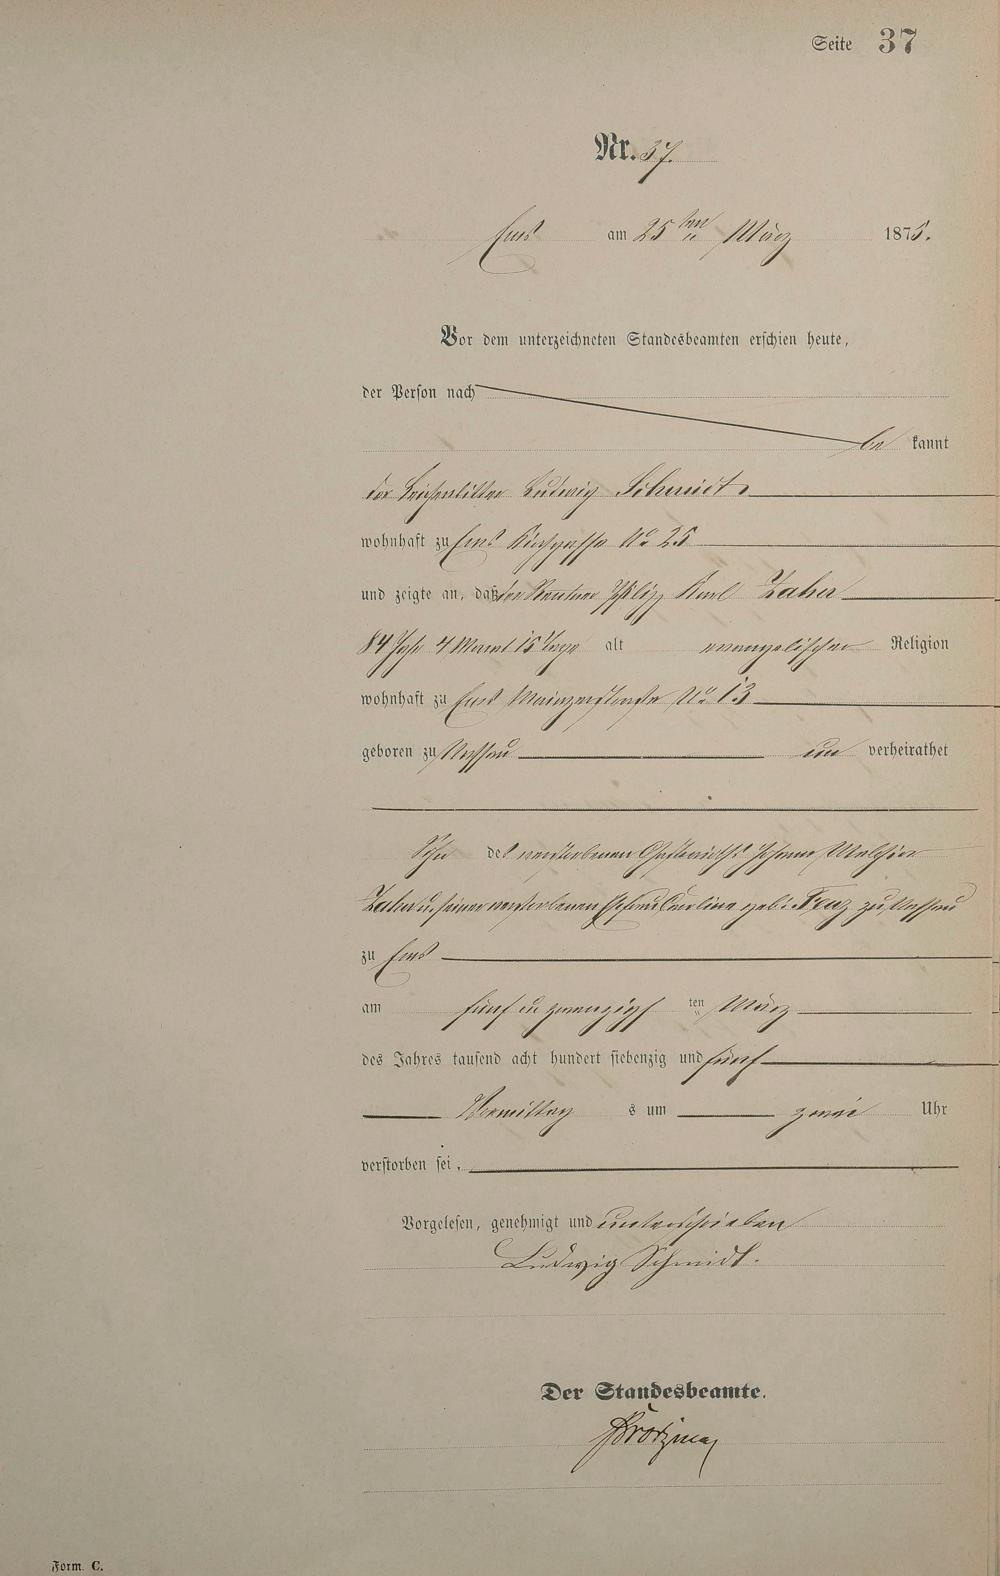 Seite 37
Nr. 37.
Ems am 25 ten März 1875.
Vor dem unterzeichneten Standesbeamten erschien heute,
der Person nach
be kannt
der Leichenbitter Ludwig Schmidt
wohnhaft zu Ems Kirchgasse No 25
und zeigte an, daß der Rentner Philipp Karl Zaher
84 Jahr 4 Monat 15 Tage alt evangelischer Religion
wohnhaft zu Ems Mainzerstraße No 13
geboren zu Nassau un verheirathet
Sohn des verstorbenen Gastwirths Johann Melchior
Zaher u. seiner verstorbenen Ehefrau Caroline geb. zu Nassau
zu Ems
am fünf u zwanzigs ten März
des Jahres tausend acht hundert siebenzig und fünf
Vormittag s um zwei Uhr
verstorben sei.
Vorgelesen, genehmigt und unterschrieben
Ludwig Schmidt.
Der Standesbeamte.
Form. C.